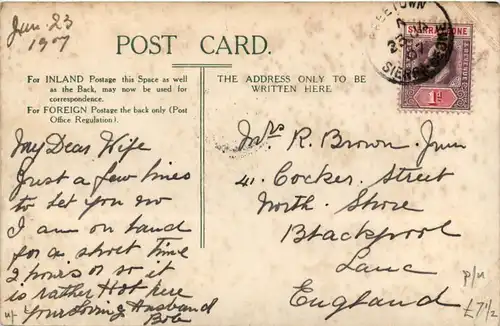 Jun. 23
1907
POST CARD.
For INLAND Postage this Space as well
as the Back, may now be used for
correspondence.
For FOREIGN Postage the back only (Post
Office Regulation).
THE ADDRESS ONLY TO BE
WRITTEN HERE
FREETOWN
SIERRA LEONE
SIERRA LEONE
1d
My Dear Wife
Just a few lines
to let you no
I am on land
for a short time
2 hours or so it
is rather Hot here
Your Loving Husband
Bob
Mrs R. Brown. Junr
41. Cocker. Street
North. Shore
Blackpool
Lanc
England
p/u
£7½